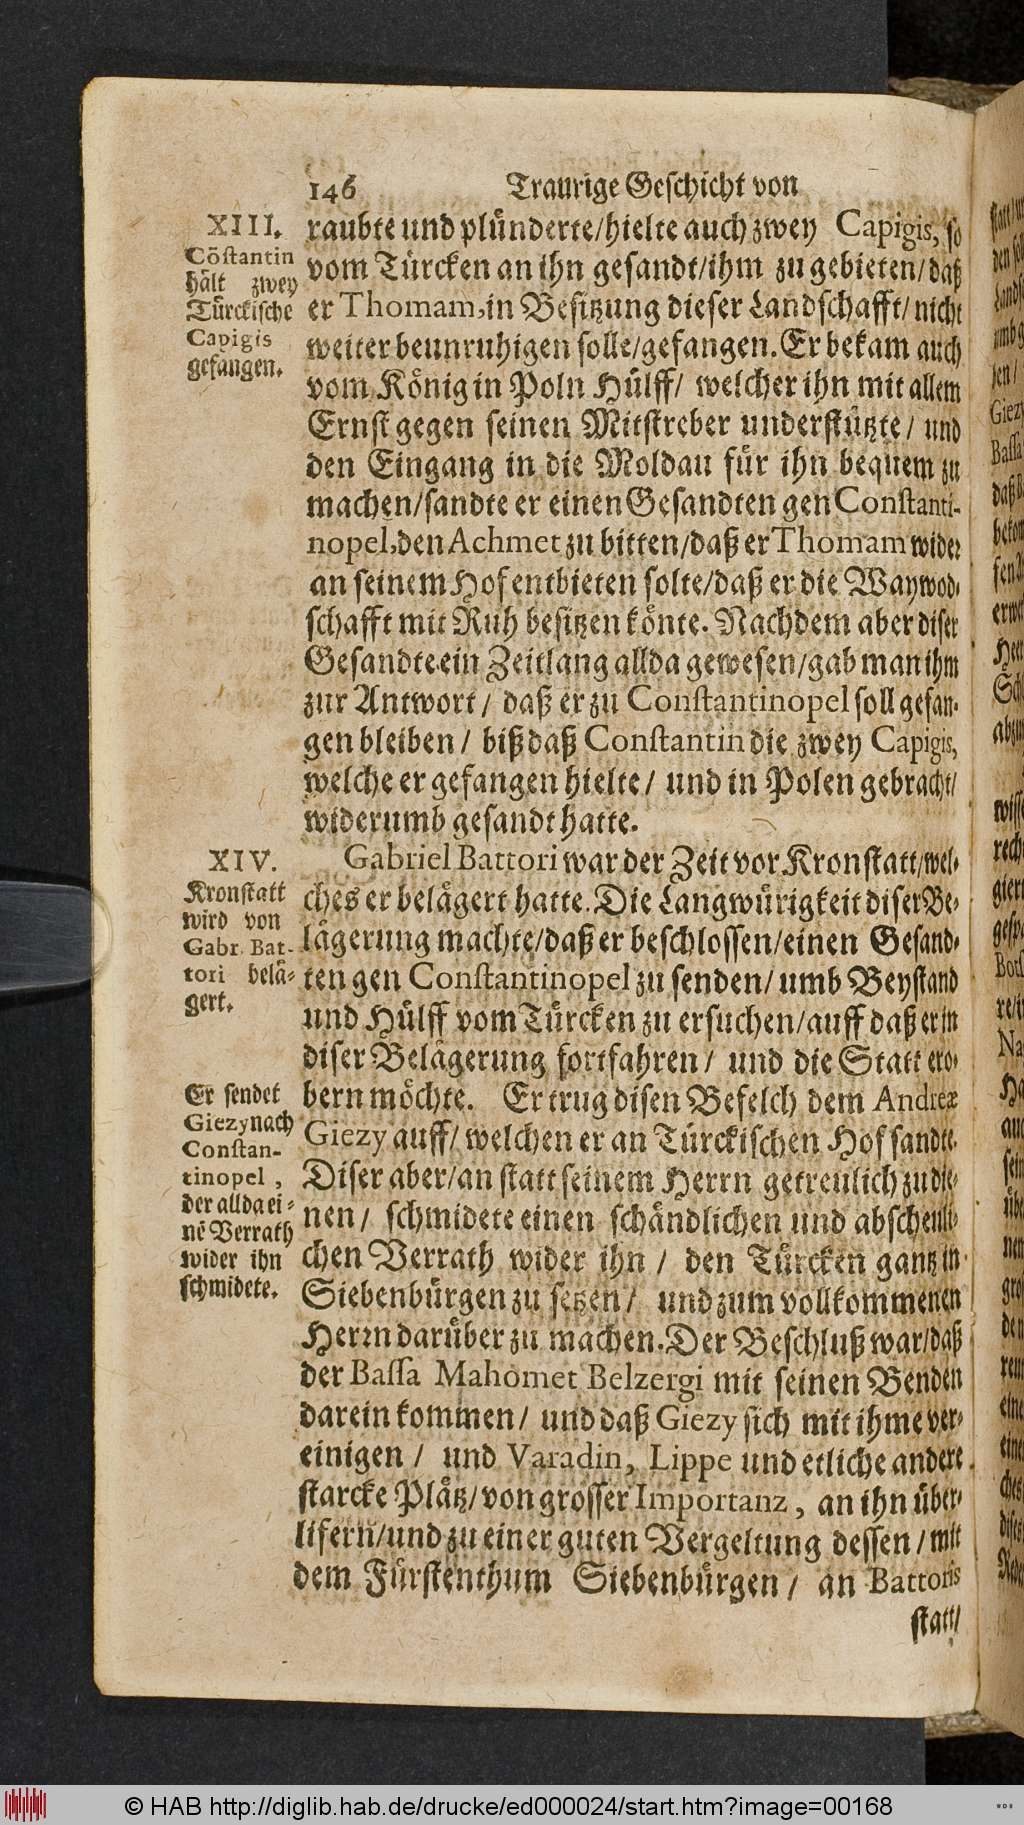 146 Traurige Geschicht von
XIII.
Cõstantin
hält zwey
Türckische
Capigis
gefangen.
raubte und plünderte/hielte auch zwey Capigis, so
vom Türcken an ihn gesandt/ihm zu gebieten/daß
er Thomam, in Besitzung dieser Landschafft/nicht
weiter beunruhigen solle/gefangen. Er bekam auch
vom König in Poln Hülff/ welcher ihn mit allem
Ernst gegen seinen Mitstreber understützte/ und
den Eingang in die Moldau für ihn bequem zu
machen/sandte er einen Gesandten gen Constanti-
nopel, den Achmet zu bitten/daß er Thomam wider
an seinem Hof entbieten solte/daß er die Waywod-
schafft mit Ruh besitzen könte. Nachdem aber diser
Gesandte ein Zeitlang allda gewesen/gab man ihm
zur Antwort/ daß er zu Constantinopel soll gefan-
gen bleiben/ biß daß Constantin die zwey Capigis,
welche er gefangen hielte/ und in Polen gebracht/
widerumb gesandt hatte.
XIV.
Kronstatt
wird von
Gabr. Bat-
tori belä-
gert.
Gabriel Battori war der Zeit vor Kronstatt/wel-
ches er belägert hatte. Die Langwürigkeit diser Be-
lägerung machte/daß er beschlossen/einen Gesand-
ten gen Constantinopel zu senden/ umb Beystand
und Hülff vom Türcken zu ersuchen/auff daß er in
diser Belägerung fortfahren/ und die Statt ero-
Er sendet
Giezy nach
Constan-
tinopel,
der allda ei-
nē Verrath
wider ihn
schmidete.
bern möchte. Er trug disen Befelch dem Andreæ
Giezy auff/ welchen er an Türckischen Hof sandte.
Diser aber/an statt seinem Herrn getreulich zu die-
nen/ schmidete einen schändlichen und abscheuli-
chen Verrath wider ihn/ den Türcken gantz in
Siebenbürgen zu setzen/ und zum vollkommenen
Herrn darüber zu machen. Der Beschluß war/daß
der Bassa Mahomet Belzergi mit seinen Benden
darein kommen/ und daß Giezy sich mit ihme ver-
einigen/ und Varadin, Lippe und etliche andere
starcke Plätz/von grosser Importanz, an ihn über-
lifern/und zu einer guten Vergeltung dessen/mit
dem Fürstenthum Siebenbürgen/ an Battoris
statt/
© HAB http://diglib.hab.de/drucke/ed000024/start.htm?image=00168